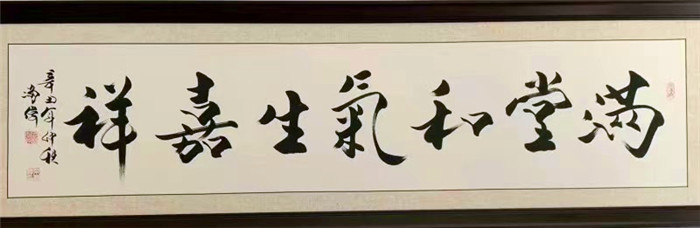 满堂和氣生嘉祥
辛丑年仲秋